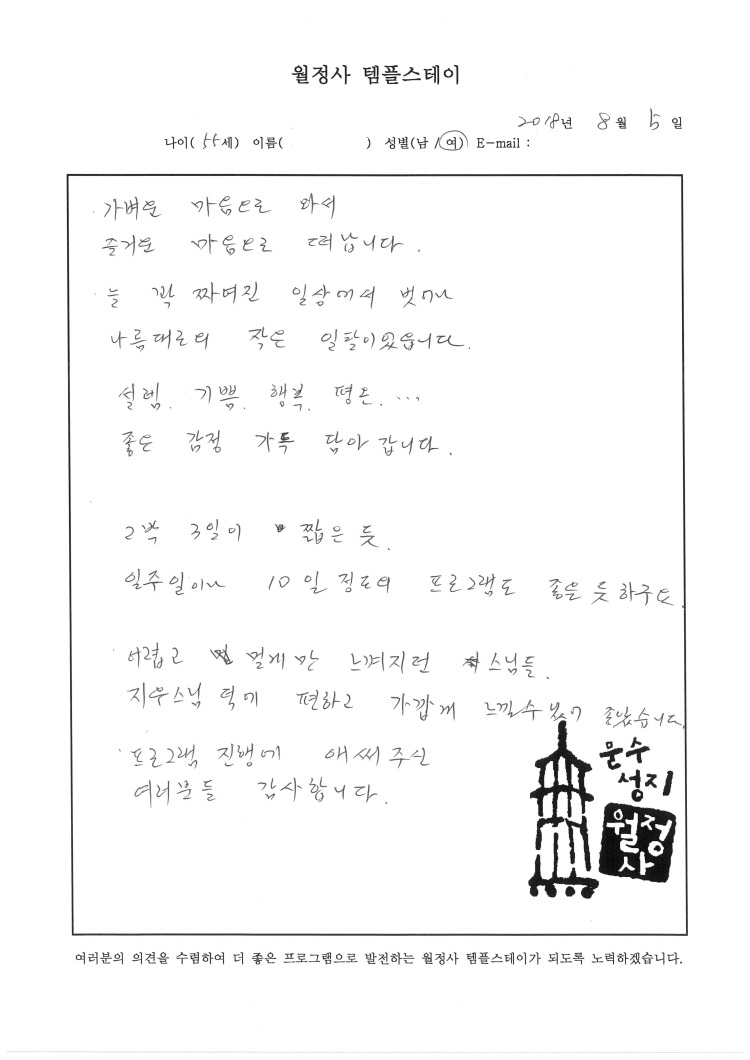 월정사 템플스테이
2018년 8월 5일
나이( 55세) 이름( ) 성별(남 /여) E-mail :
가벼운 마음으로 와서
즐거운 마음으로 떠납니다.
늘 꽉 짜여진 일상에서 벗어나
나름대로의 작은 일탈이었습니다.
설렘. 기쁨. 행복. 평온. ...
좋은 감정 가득 담아 갑니다.
2박 3일이 짧은 듯.
일주일이나 10일 정도의 프로그램도 좋을 듯 하구요.
어렵고 멀게만 느껴지던 스님들.
지우스님 덕에 편하고 가깝게 느낄수 있어 좋았습니다.
프로그램 진행에 애써주신
여러분들 감사합니다.
문수
성지
월정
사
여러분의 의견을 수렴하여 더 좋은 프로그램으로 발전하는 월정사 템플스테이가 되도록 노력하겠습니다.